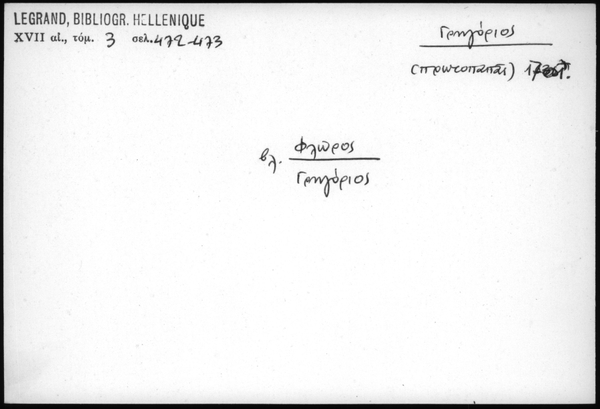 LEGRAND, BIBLIOGR. HELLENIQUE
XVII αἰ., τόμ. 3 σελ. 472-473
Γρηγόριος
(πρωτοπαπᾶς)
βλ. Φλῶρος
Γρηγόριος